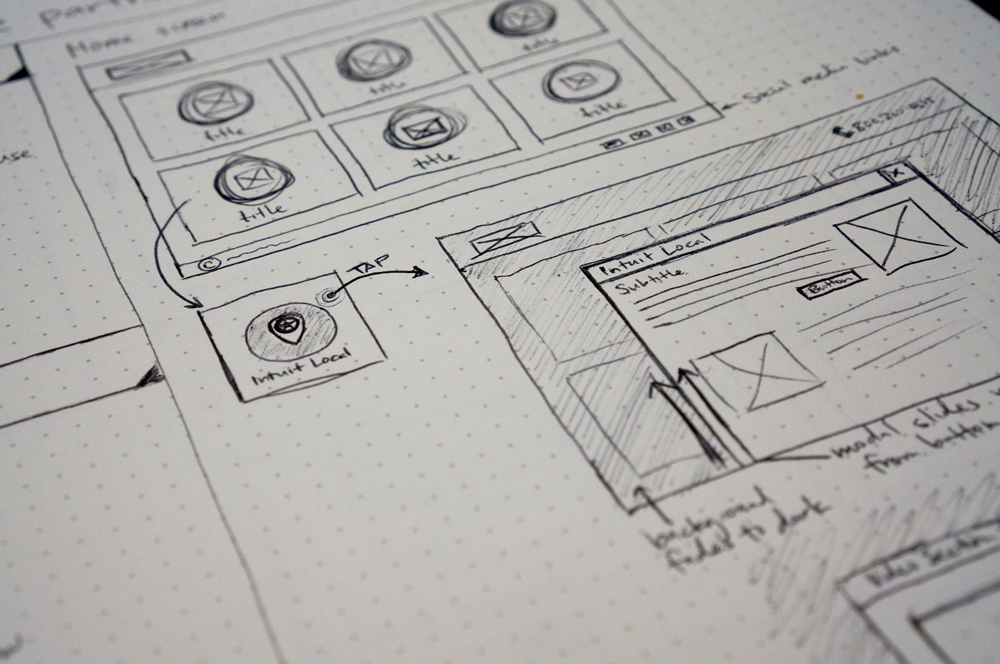 Home screen
title
title
title
title
title
title
social media links
use
TAP
Intuit Local
Intuit Local
Subtitle
Button
modal slides
from bottom
background
fades to dark
Video Section